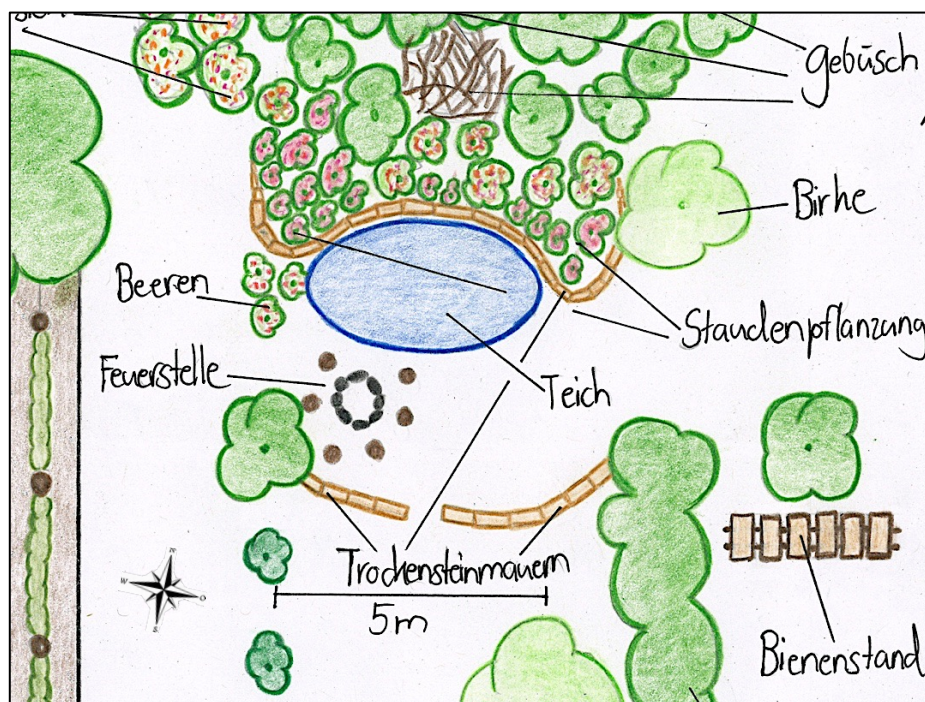 Gebüsch
Birke
Beeren
Staudenpflanzung
Feuerstelle
Teich
Trockensteinmauern
5m
Bienenstand